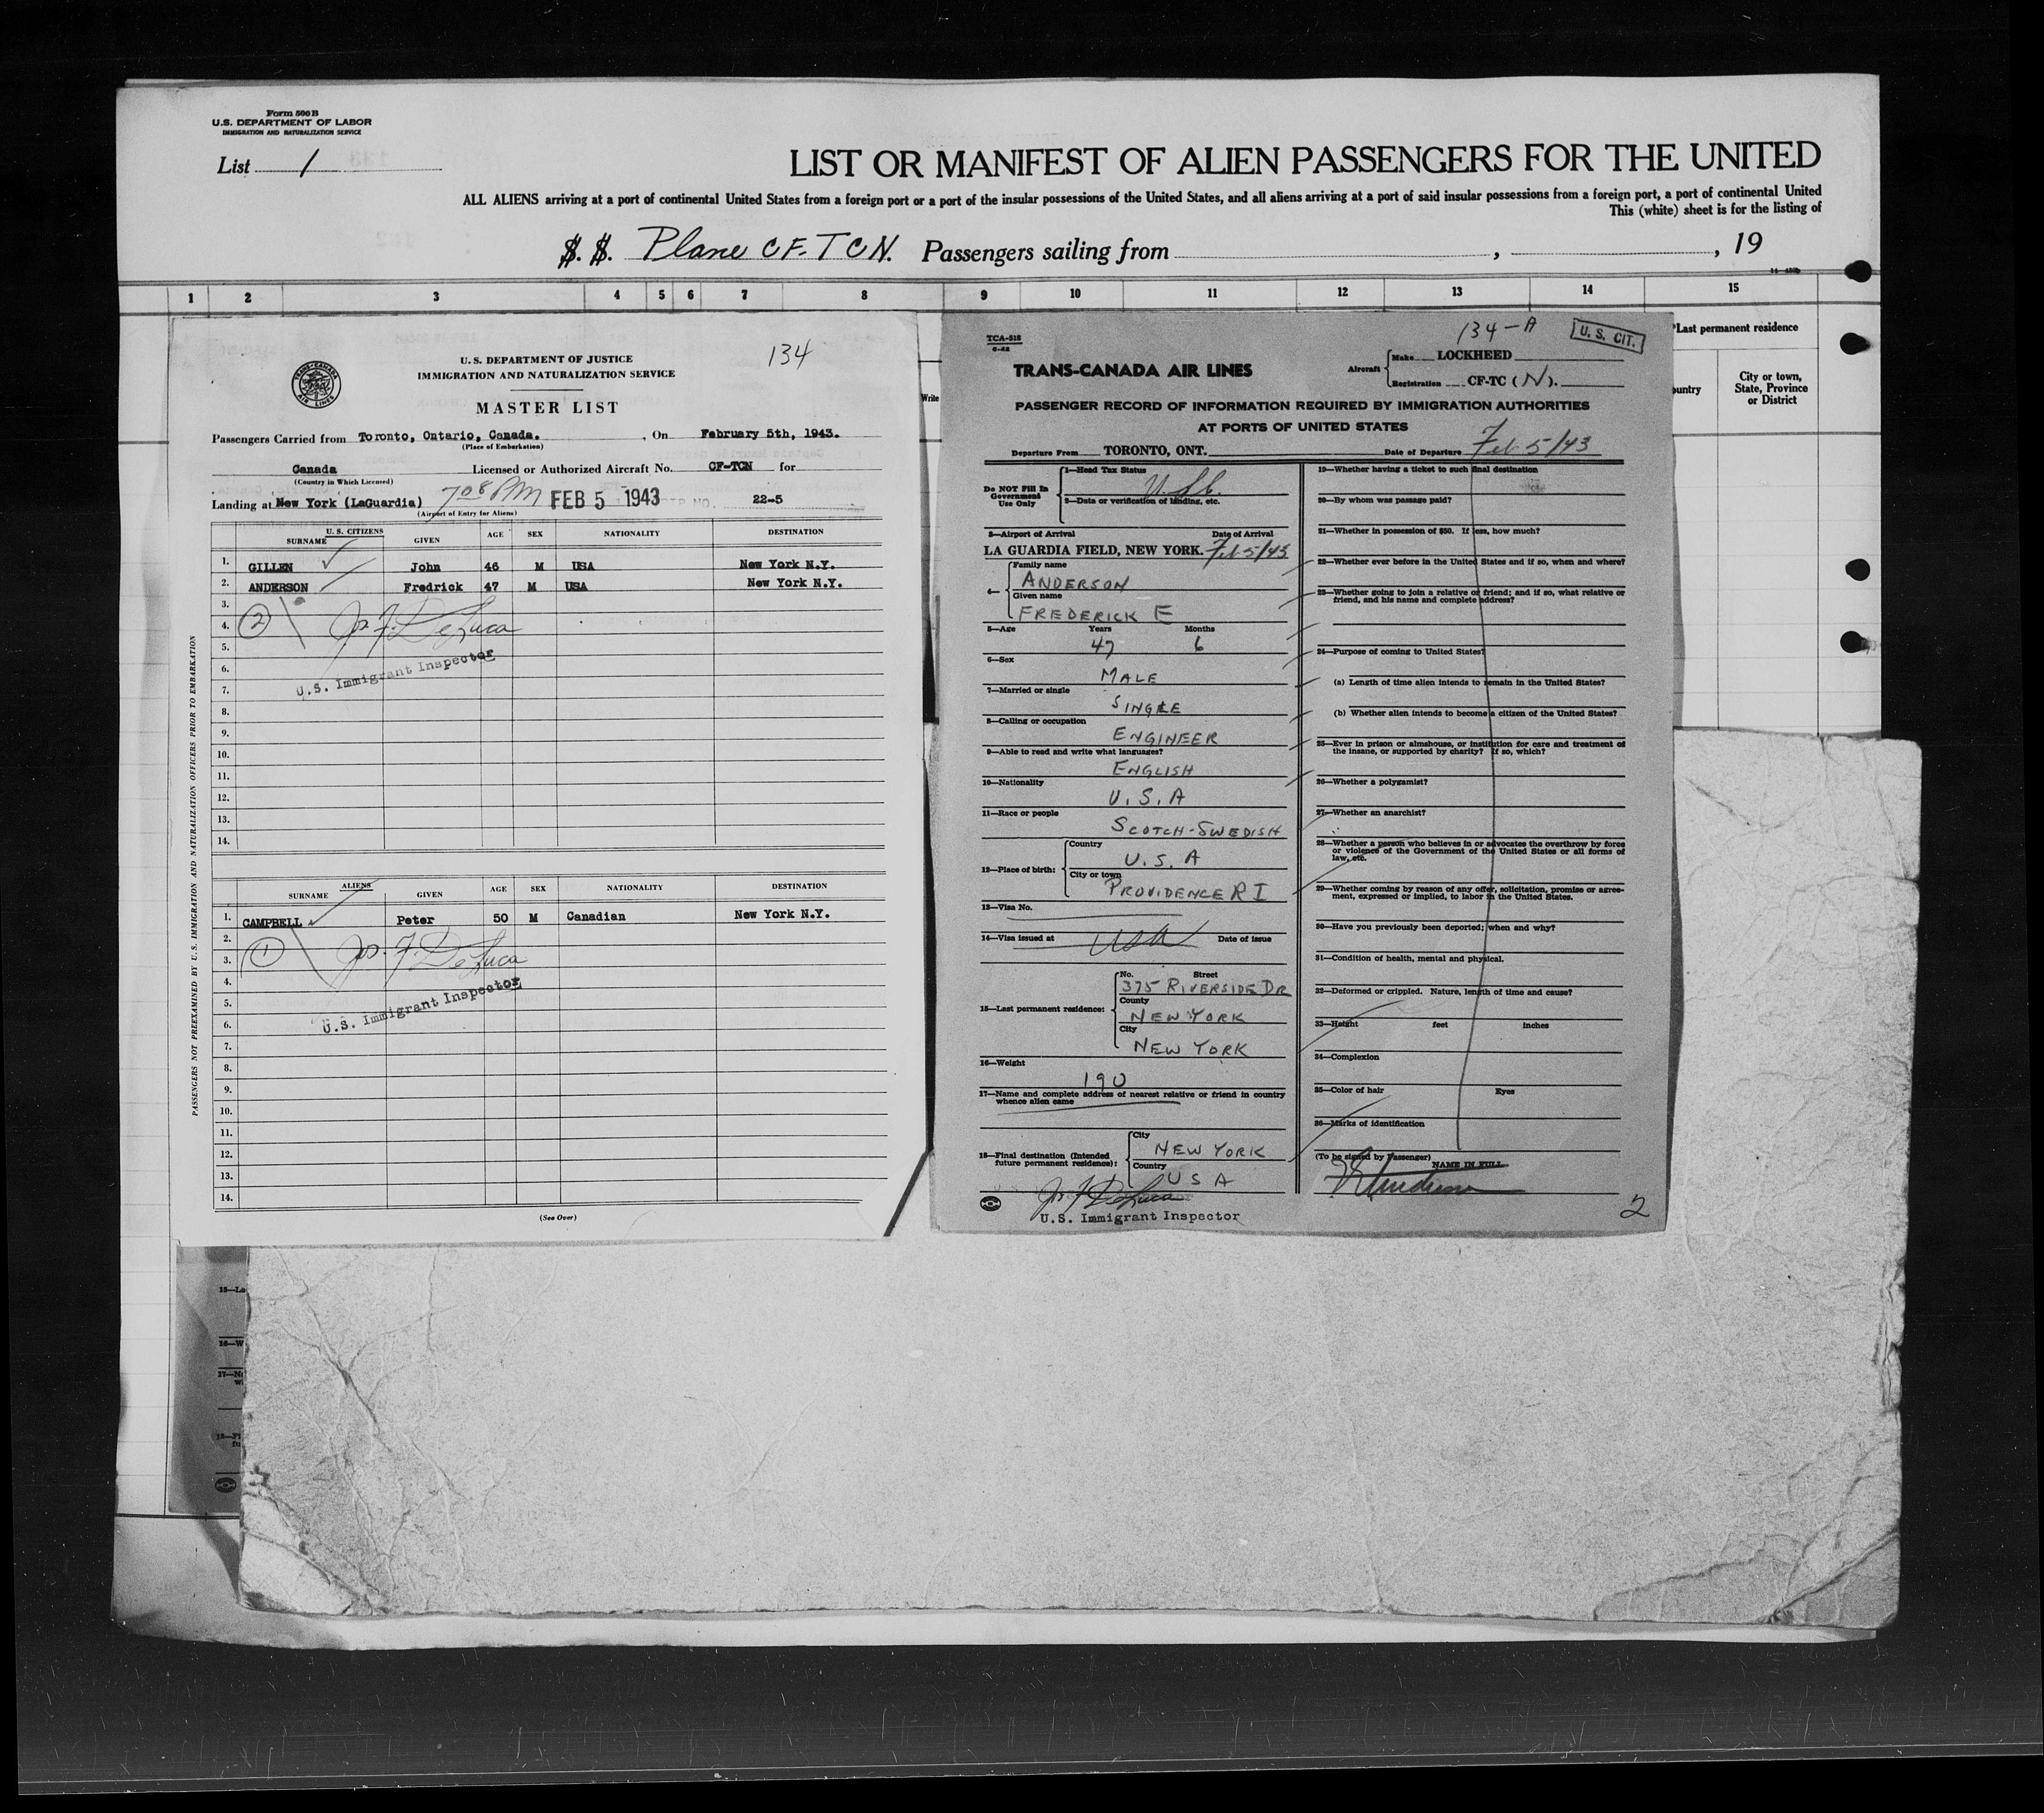 Form 500 B
U.S. DEPARTMENT OF LABOR
IMMIGRATION AND NATURALIZATION SERVICE
List 1
LIST OR MANIFEST OF ALIEN PASSENGERS FOR THE UNITED
ALL ALIENS arriving at a port of continental United States from a foreign port or a port of the insular possessions of the United States, and all aliens arriving at a port of said insular possessions from a foreign port, a port of continental United
This (white) sheet is for the listing of
S. S. Plane CF-TCN. Passengers sailing from , , 19
1 2 3 4 5 6 7 8 9 10 11 12 13 14 15
134
U.S. DEPARTMENT OF JUSTICE
IMMIGRATION AND NATURALIZATION SERVICE
TRANS-CANADA AIR LINES
MASTER LIST
Passengers Carried from Toronto, Ontario, Canada. , On February 5th, 1943.
(Place of Embarkation)
Canada Licensed or Authorized Aircraft No. CF-TCN for
(Country in Which Licensed)
Landing at New York (LaGuardia) 7 08 PM FEB 5 1943 TRIP NO. 22-5
(Airport of Entry for Aliens)
U.S. CITIZENS
SURNAME GIVEN AGE SEX NATIONALITY DESTINATION
1. GILLEN John 46 M USA New York N.Y.
2. ANDERSON Fredrick 47 M USA New York N.Y.
3.
4. 2 Jos. F. DeLuca
5.
6. U.S. Immigrant Inspector
7.
8.
9.
10.
11.
12.
13.
14.
ALIENS
SURNAME GIVEN AGE SEX NATIONALITY DESTINATION
1. CAMPBELL Peter 50 M Canadian New York N.Y.
2.
3. 1 Jos. F. DeLuca
4.
5. U.S. Immigrant Inspector
6.
7.
8.
9.
10.
11.
12.
13.
14.
(See Over)
PASSENGERS NOT PREEXAMINED BY U.S. IMMIGRATION AND NATURALIZATION OFFICERS PRIOR TO EMBARKATION
Write
TCA-518
6-42
134-A
U. S. CIT.
TRANS-CANADA AIR LINES
Aircraft Make LOCKHEED
Registration CF-TC (N).
PASSENGER RECORD OF INFORMATION REQUIRED BY IMMIGRATION AUTHORITIES
AT PORTS OF UNITED STATES
Departure From TORONTO, ONT. Date of Departure Feb 5/43
Do NOT Fill In Government Use Only
1—Head Tax Status
2—Data or verification of landing, etc.
3—Airport of Arrival Date of Arrival
LA GUARDIA FIELD, NEW YORK. Feb 5/43
4— Family name
ANDERSON
Given name
FREDERICK E
5—Age Years Months
47 6
6—Sex
MALE
7—Married or single
SINGLE
8—Calling or occupation
ENGINEER
9—Able to read and write what languages?
ENGLISH
10—Nationality
U.S.A
11—Race or people
SCOTCH-SWEDISH
12—Place of birth: Country
U.S.A
City or town
PROVIDENCE R I
13—Visa No.
14—Visa issued at USA Date of issue
15—Last permanent residence: No. Street
375 RIVERSIDE DR
County
NEW YORK
City
NEW YORK
16—Weight
190
17—Name and complete address of nearest relative or friend in country
whence alien came
18—Final destination (Intended future permanent residence): City
NEW YORK
Country
U S A
Jos F DeLuca
U.S. Immigrant Inspector
19—Whether having a ticket to such final destination
20—By whom was passage paid?
21—Whether in possession of $50. If less, how much?
22—Whether ever before in the United States and if so, when and where?
23—Whether going to join a relative or friend; and if so, what relative or
friend, and his name and complete address?
24—Purpose of coming to United States?
(a) Length of time alien intends to remain in the United States?
(b) Whether alien intends to become a citizen of the United States?
25—Ever in prison or almshouse, or institution for care and treatment of
the insane, or supported by charity? If so, which?
26—Whether a polygamist?
27—Whether an anarchist?
28—Whether a person who believes in or advocates the overthrow by force
or violence of the Government of the United States or all forms of
law, etc.
29—Whether coming by reason of any offer, solicitation, promise or agree-
ment, expressed or implied, to labor in the United States.
30—Have you previously been deported; when and why?
31—Condition of health, mental and physical.
32—Deformed or crippled. Nature, length of time and cause?
33—Height feet inches
34—Complexion
35—Color of hair Eyes
36—Marks of identification
(To be signed by Passenger) NAME IN FULL
2
Last permanent residence
City or town, State, Province or District